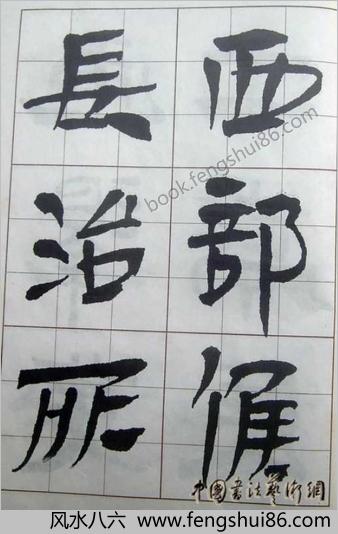 西部候
長治所
book.fengshui86.com
中国书法艺术网
风水八六 www.fengshui86.com